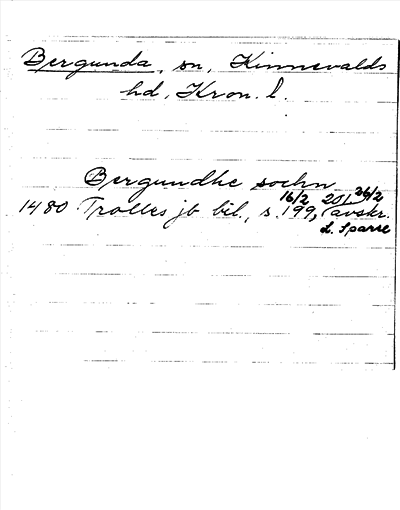 Bergunda, sn, Kinnevalds
hd, Kron. l.
Bergundhe sochn
16/2 26/2
1480 Trolles jb bil., s. 199, 201 (avskr.
L. Sparre